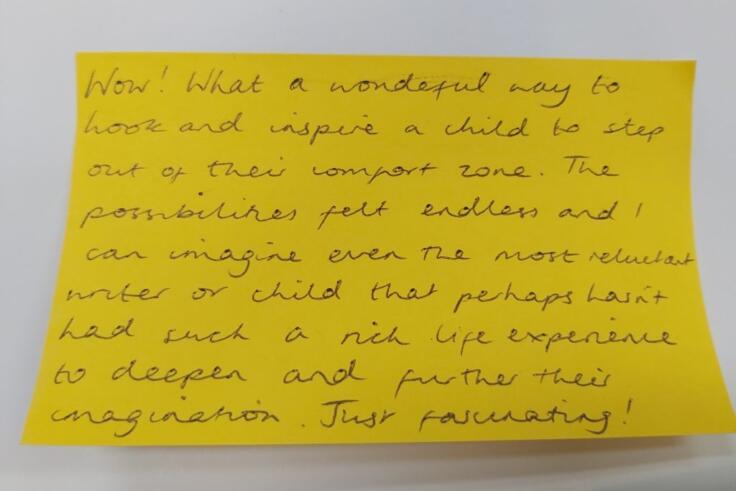 Wow! What a wonderful way to
hook and inspire a child to step
out of their comfort zone. The
possibilities felt endless and I
can imagine even the most reluctant
writer or child that perhaps hasn't
had such a rich life experience
to deepen and further their
imagination. Just fascinating!